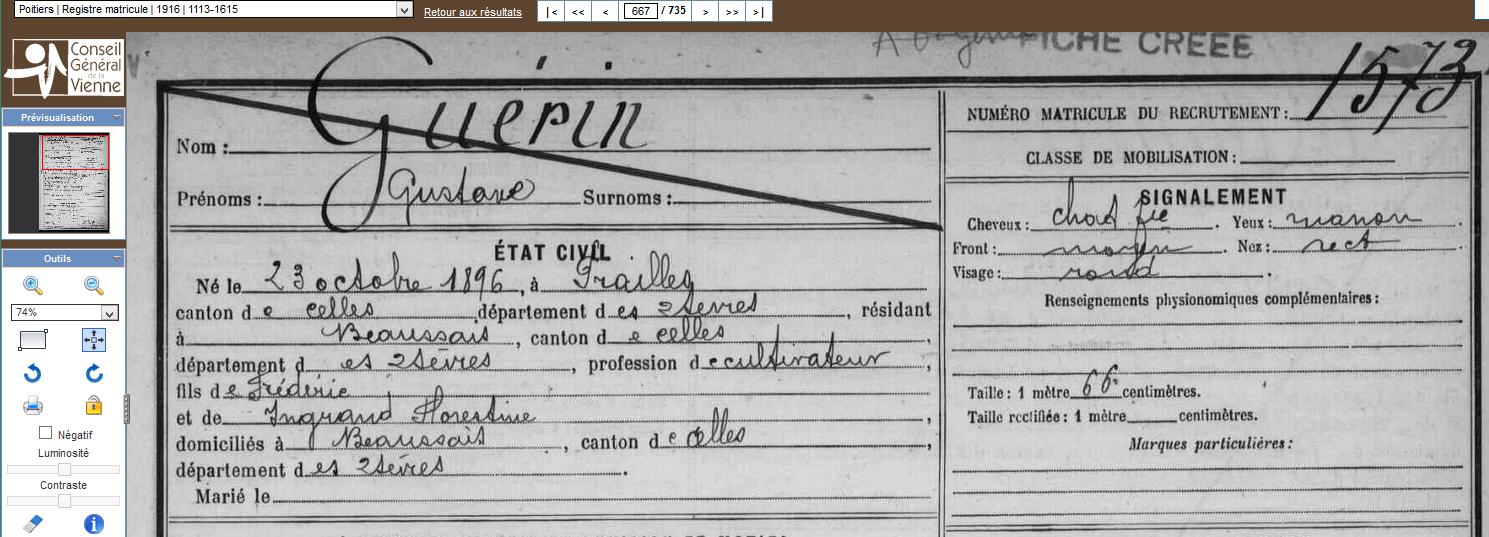 Poitiers | Registre matricule | 1916 | 1113-1615
Retour aux résultats
|< << < 667 / 735 > >> >|
Conseil
Général
de la
Vienne
Prévisualisation
Outils
74%
Négatif
Luminosité
Contraste
FICHE CRÉÉE
1573
Nom : Guérin
Prénoms : Gustave Surnoms :
ÉTAT CIVIL.
Né le 23 octobre 1896, à
canton de celles, département des 2 sèvres, résidant
à Beaussais, canton de celles,
département des 2 sèvres, profession de cultivateur,
fils de Frédéric
et de Ingrand Florestine,
domiciliés à Beaussais, canton de celles,
département des 2 sèvres.
Marié le
NUMÉRO MATRICULE DU RECRUTEMENT :
CLASSE DE MOBILISATION :
SIGNALEMENT
Cheveux : Yeux : marron
Front : moyen. Nez : rect.
Visage : rond.
Renseignements physionomiques complémentaires :
Taille : 1 mètre 66 centimètres.
Taille rectifiée : 1 mètre centimètres.
Marques particulières :